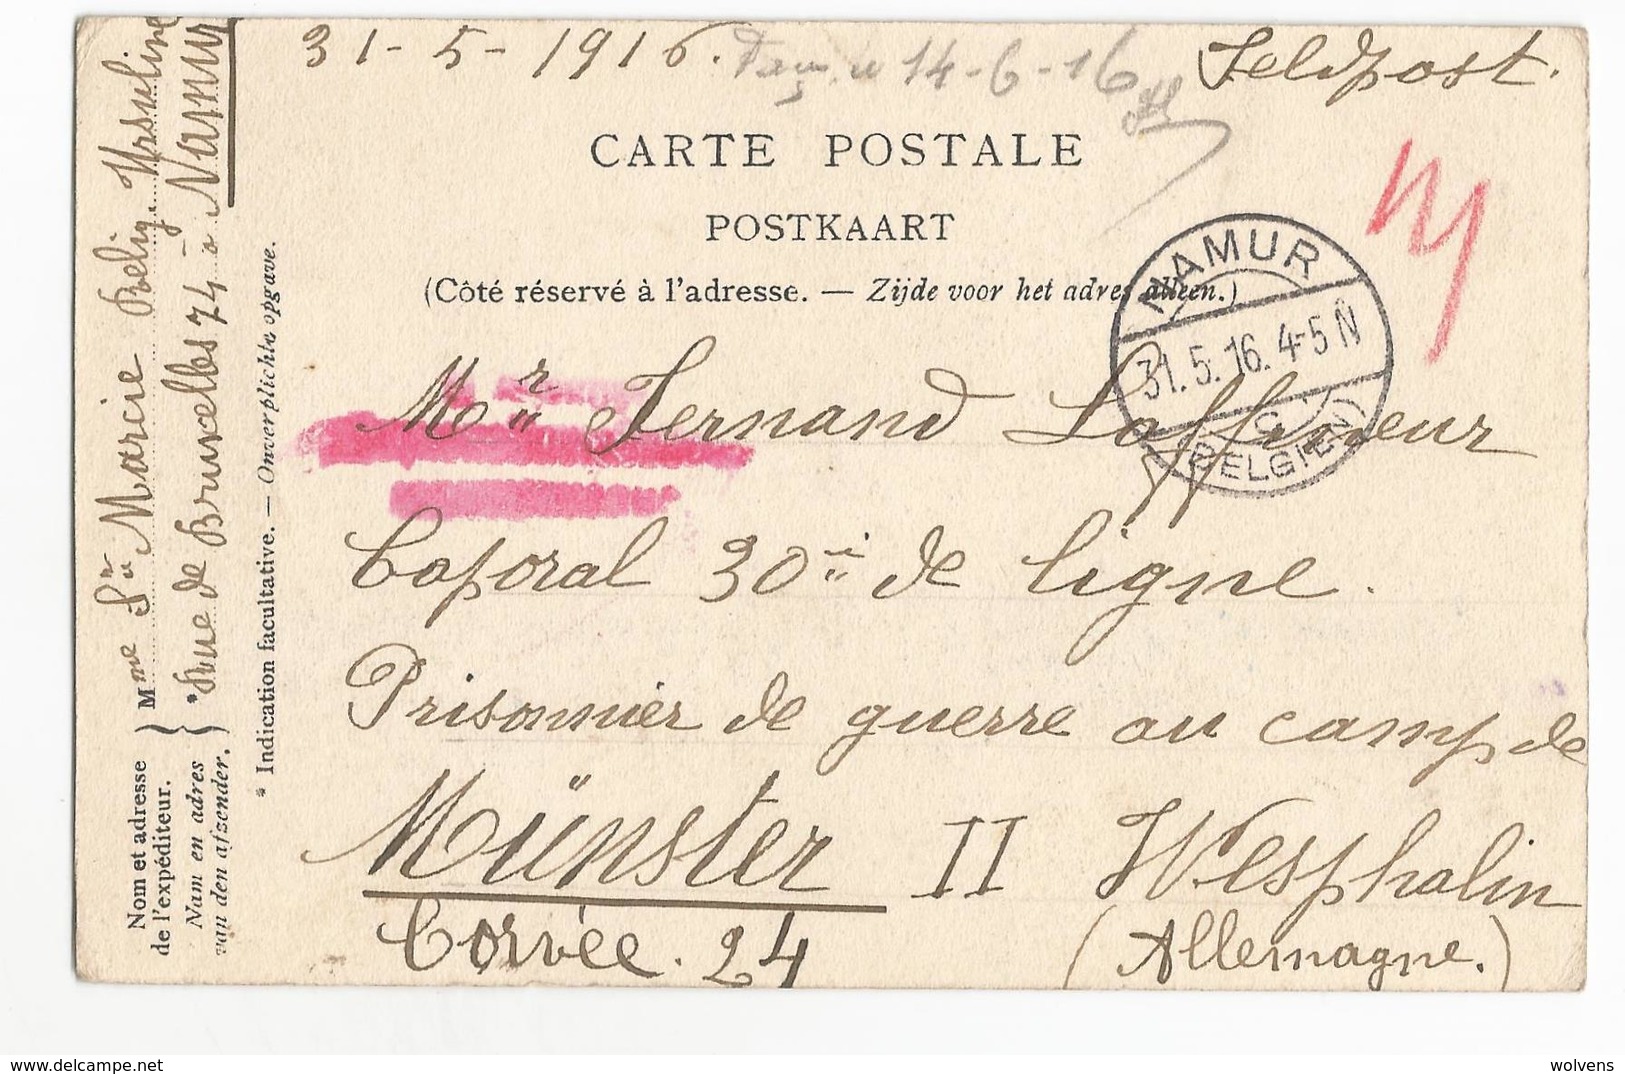 31-5-1916. 14-6-16 Feldpost.
CARTE POSTALE
POSTKAART
(Côté réservé à l'adresse. — Zijde voor het adres alleen.)
NAMUR
31.5.16. 4-5 N
C
(BELGIEN)
Mr Fernand
Caporal 30ii de ligne.
Prisonnier de guerre au camp de
Münster II Westphalin
Corvée. 24 (Allemagne.)
Nom et adresse
de l'expéditeur.
Mme Sr Marcie Relig. Ursuline
Nam en adres
van den afzender.
*Rue de Bruxelles 74 à Namur
* Indication facultative. — Onverplichte opgave.
delcampe.net
wolvens